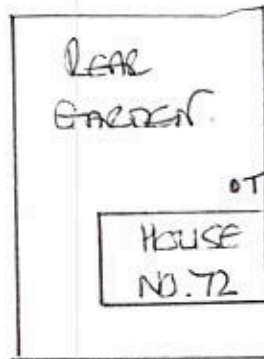 REAR
GARDEN.
OT
HOUSE
NO. 72